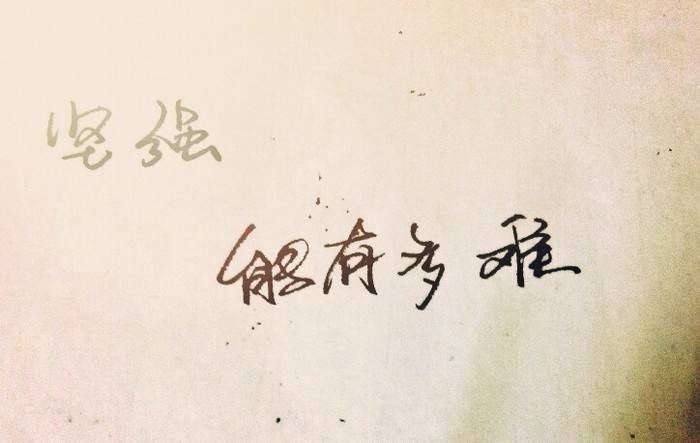 坚强
能有多难